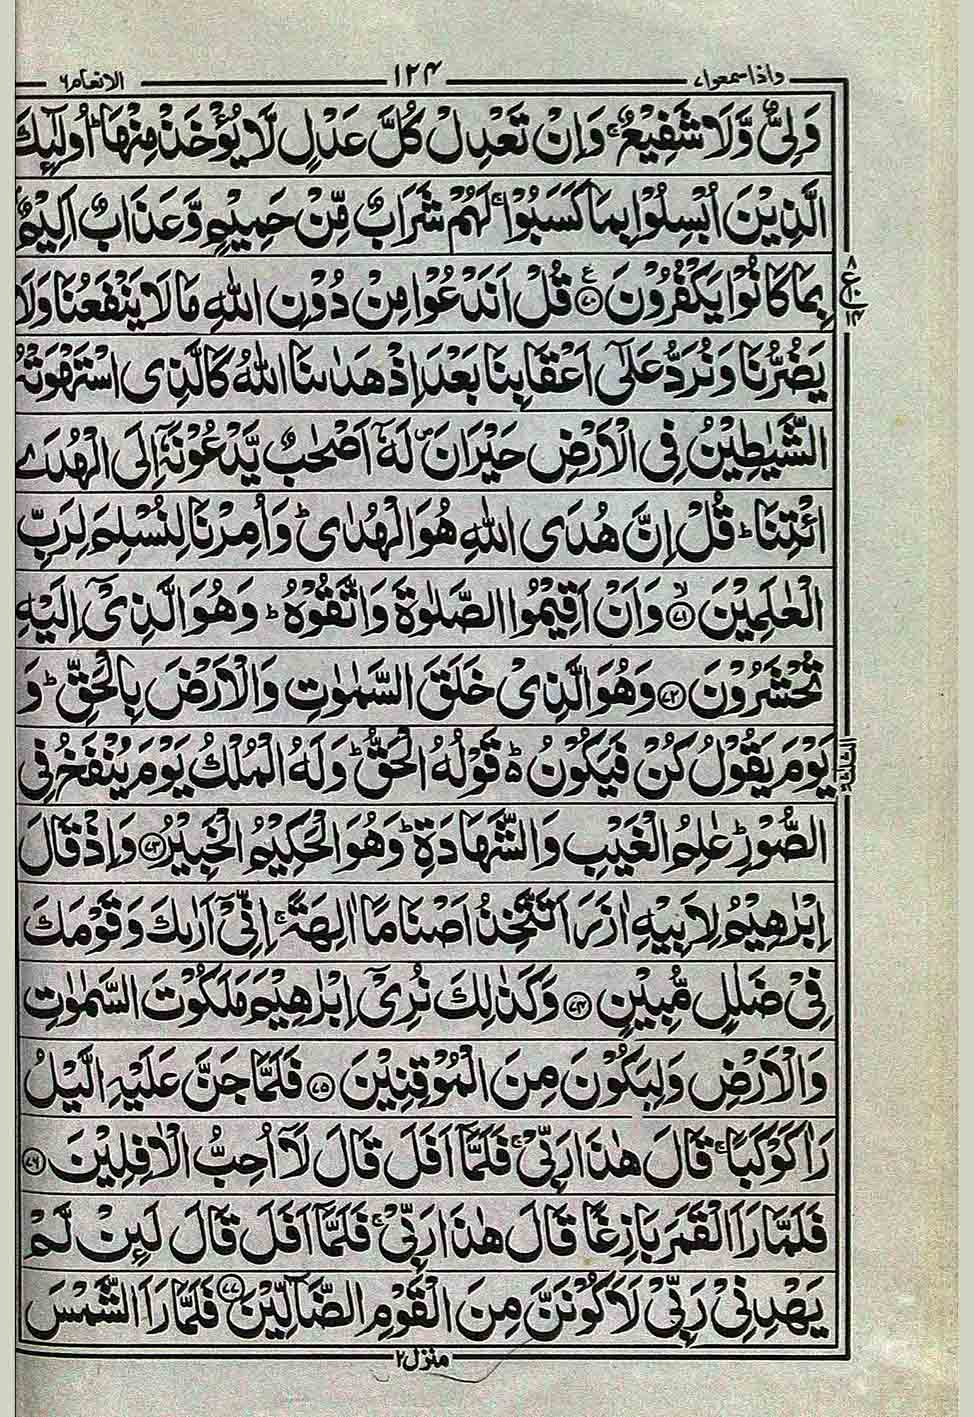 واذا سمعوا ٧
١٢٤
الانعام ٦
وَلِىٌّ وَّلَا شَفِيْعٌ ۚ وَاِنْ تَعْدِلْ كُلَّ عَدْلٍ لَّا يُؤْخَذْ مِنْهَا ؕ اُولٰٓئِكَ
الَّذِيْنَ اُبْسِلُوْا بِمَا كَسَبُوْا ۚ لَهُمْ شَرَابٌ مِّنْ حَمِيْمٍ وَّعَذَابٌ اَلِيْمٌۢ
بِمَا كَانُوْا يَكْفُرُوْنَ ﴿٧٠﴾ قُلْ اَنَدْعُوْا مِنْ دُوْنِ اللّٰهِ مَا لَا يَنْفَعُنَا وَلَا
٨
ع
١٤
يَضُرُّنَا وَنُرَدُّ عَلٰٓى اَعْقَابِنَا بَعْدَ اِذْ هَدٰىنَا اللّٰهُ كَالَّذِى اسْتَهْوَتْهُ
الشَّيٰطِيْنُ فِى الْاَرْضِ حَيْرَانَ ۪ لَهٗٓ اَصْحٰبٌ يَّدْعُوْنَهٗٓ اِلَى الْهُدَى
ائْتِنَا ؕ قُلْ اِنَّ هُدَى اللّٰهِ هُوَ الْهُدٰى ؕ وَاُمِرْنَا لِنُسْلِمَ لِرَبِّ
الْعٰلَمِيْنَ ۙ﴿٧١﴾ وَاَنْ اَقِيْمُوا الصَّلٰوةَ وَاتَّقُوْهُ ؕ وَهُوَ الَّذِىْٓ اِلَيْهِ
تُحْشَرُوْنَ ﴿٧٢﴾ وَهُوَ الَّذِىْ خَلَقَ السَّمٰوٰتِ وَالْاَرْضَ بِالْحَقِّ ؕ وَ
يَوْمَ يَقُوْلُ كُنْ فَيَكُوْنُ ؕ قَوْلُهُ الْحَقُّ ؕ وَلَهُ الْمُلْكُ يَوْمَ يُنْفَخُ فِى
الثلثة
الصُّوْرِ ؕ عٰلِمُ الْغَيْبِ وَالشَّهَادَةِ ؕ وَهُوَ الْحَكِيْمُ الْخَبِيْرُ ﴿٧٣﴾ وَاِذْ قَالَ
اِبْرٰهِيْمُ لِاَبِيْهِ اٰزَرَ اَتَتَّخِذُ اَصْنَامًا اٰلِهَةً ۚ اِنِّىْٓ اَرٰىكَ وَقَوْمَكَ
فِىْ ضَلٰلٍ مُّبِيْنٍ ﴿٧٤﴾ وَكَذٰلِكَ نُرِىْٓ اِبْرٰهِيْمَ مَلَكُوْتَ السَّمٰوٰتِ
وَالْاَرْضِ وَلِيَكُوْنَ مِنَ الْمُوْقِنِيْنَ ﴿٧٥﴾ فَلَمَّا جَنَّ عَلَيْهِ الَّيْلُ
رَاٰ كَوْكَبًا ۚ قَالَ هٰذَا رَبِّىْ ۚ فَلَمَّآ اَفَلَ قَالَ لَآ اُحِبُّ الْاٰفِلِيْنَ ﴿٧٦﴾
فَلَمَّا رَاَ الْقَمَرَ بَازِغًا قَالَ هٰذَا رَبِّىْ ۚ فَلَمَّآ اَفَلَ قَالَ لَئِنْ لَّمْ
يَهْدِنِىْ رَبِّىْ لَاَكُوْنَنَّ مِنَ الْقَوْمِ الضَّآلِّيْنَ ﴿٧٧﴾ فَلَمَّا رَاَ الشَّمْسَ
منزل ٢